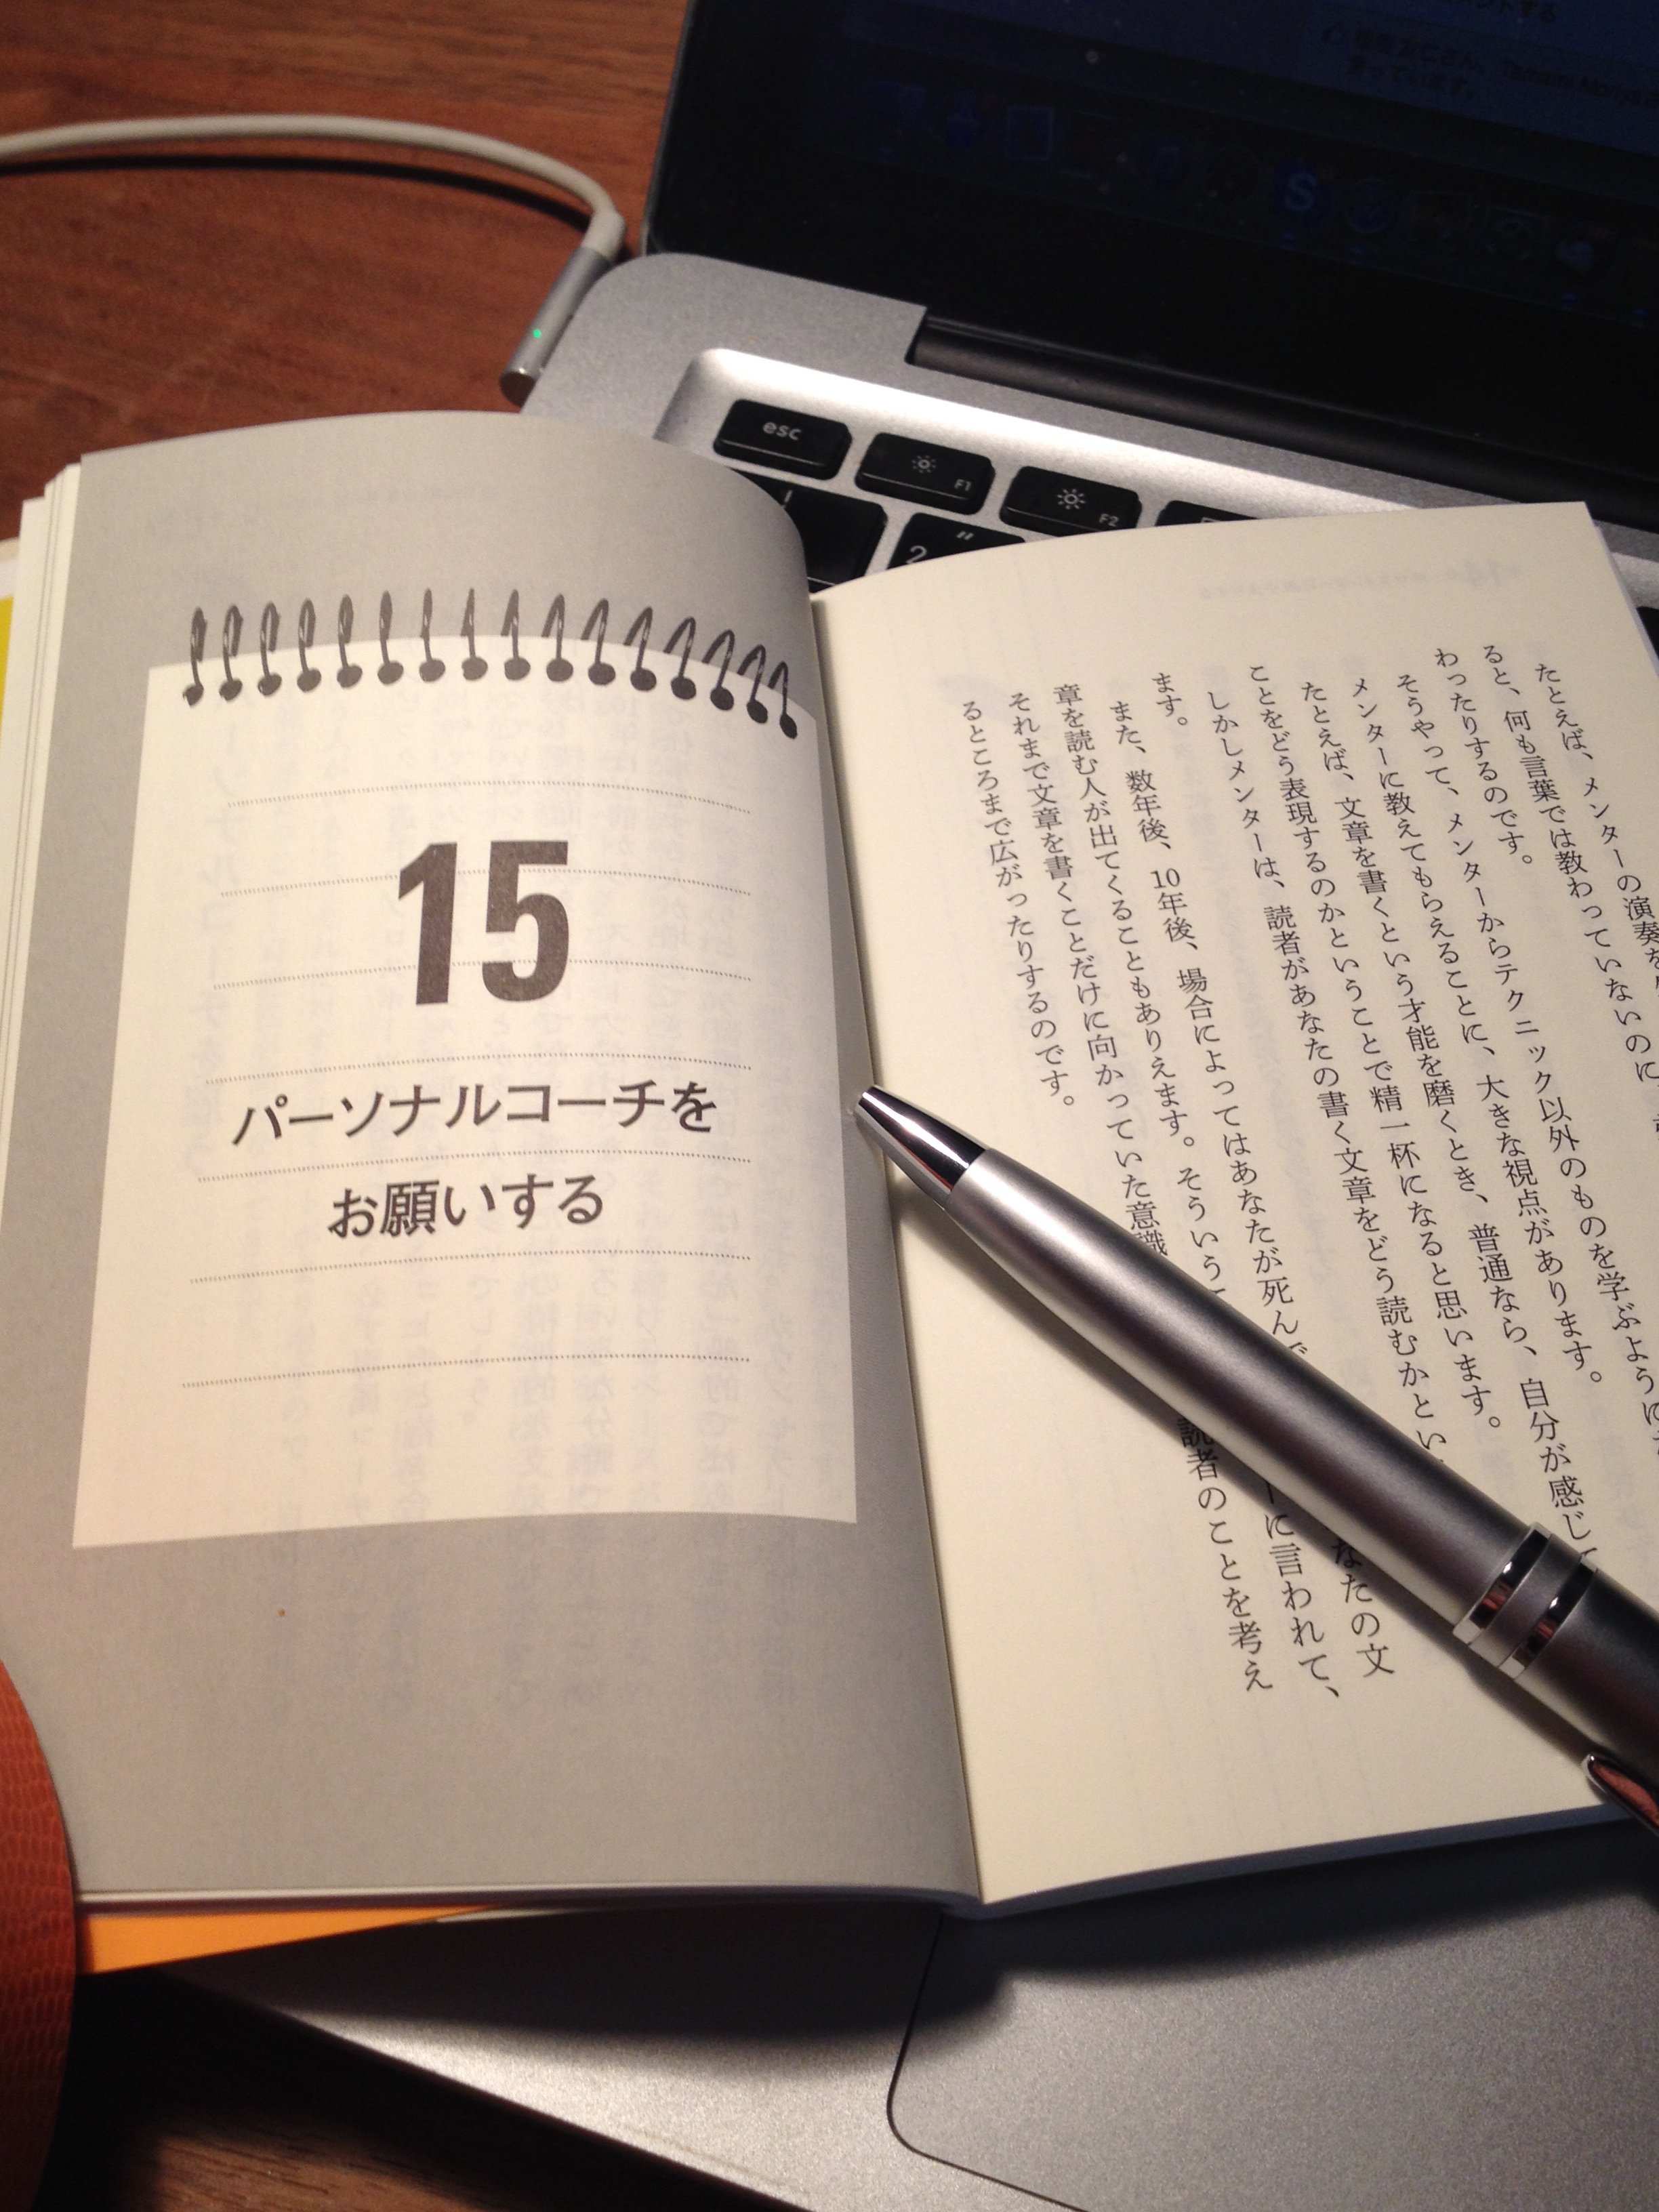 たとえば、メンターの演奏を
ると、何も言葉では教わっていないのに、
わったりするのです。
そうやって、メンターからテクニック以外のものを学ぶように
メンターに教えてもらえることに、大きな視点があります。
たとえば、文章を書くという才能を磨くとき、普通なら、自分が感じて
ことをどう表現するのかということで精一杯になると思います。
しかしメンターは、読者があなたの書く文章をどう読むかとい
ます。
また、数年後、10年後、場合によってはあなたが死んで なたの文
章を読む人が出てくることもありえます。そういう に言われて、
それまで文章を書くことだけに向かっていた意識 読者のことを考え
るところまで広がったりするのです。
15
パーソナルコーチを
お願いする
esc
F1
F2
2
S